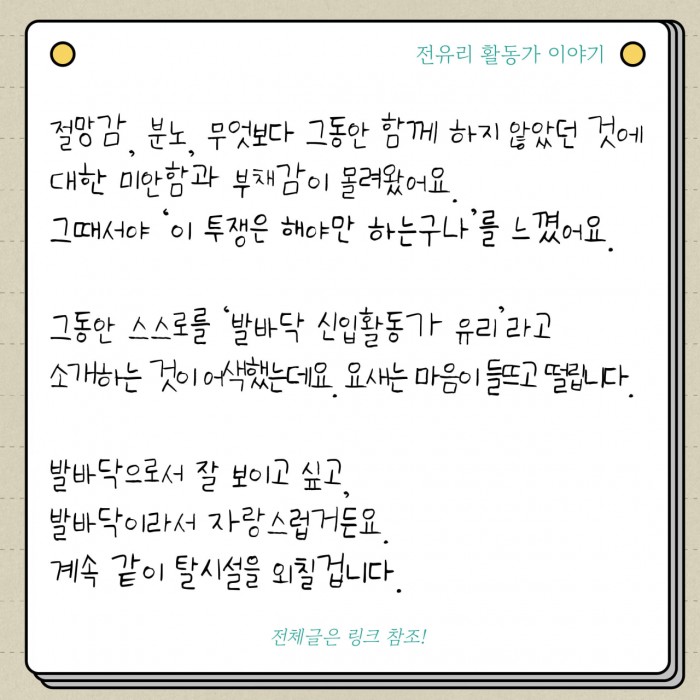 전유리 활동가 이야기
절망감, 분노, 무엇보다 그동안 함께 하지 않았던 것에
대한 미안함과 부채감이 몰려왔어요.
그때서야 '이 투쟁은 해야만 하는구나'를 느꼈어요.
그동안 스스로를 '발바닥 신입활동가 유리'라고
소개하는 것이 어색했는데요. 요새는 마음이 들뜨고 떨립니다.
발바닥으로서 잘 보이고 싶고,
발바닥이라서 자랑스럽거든요.
계속 같이 탈시설을 외칠겁니다.
전체글은 링크 참조!